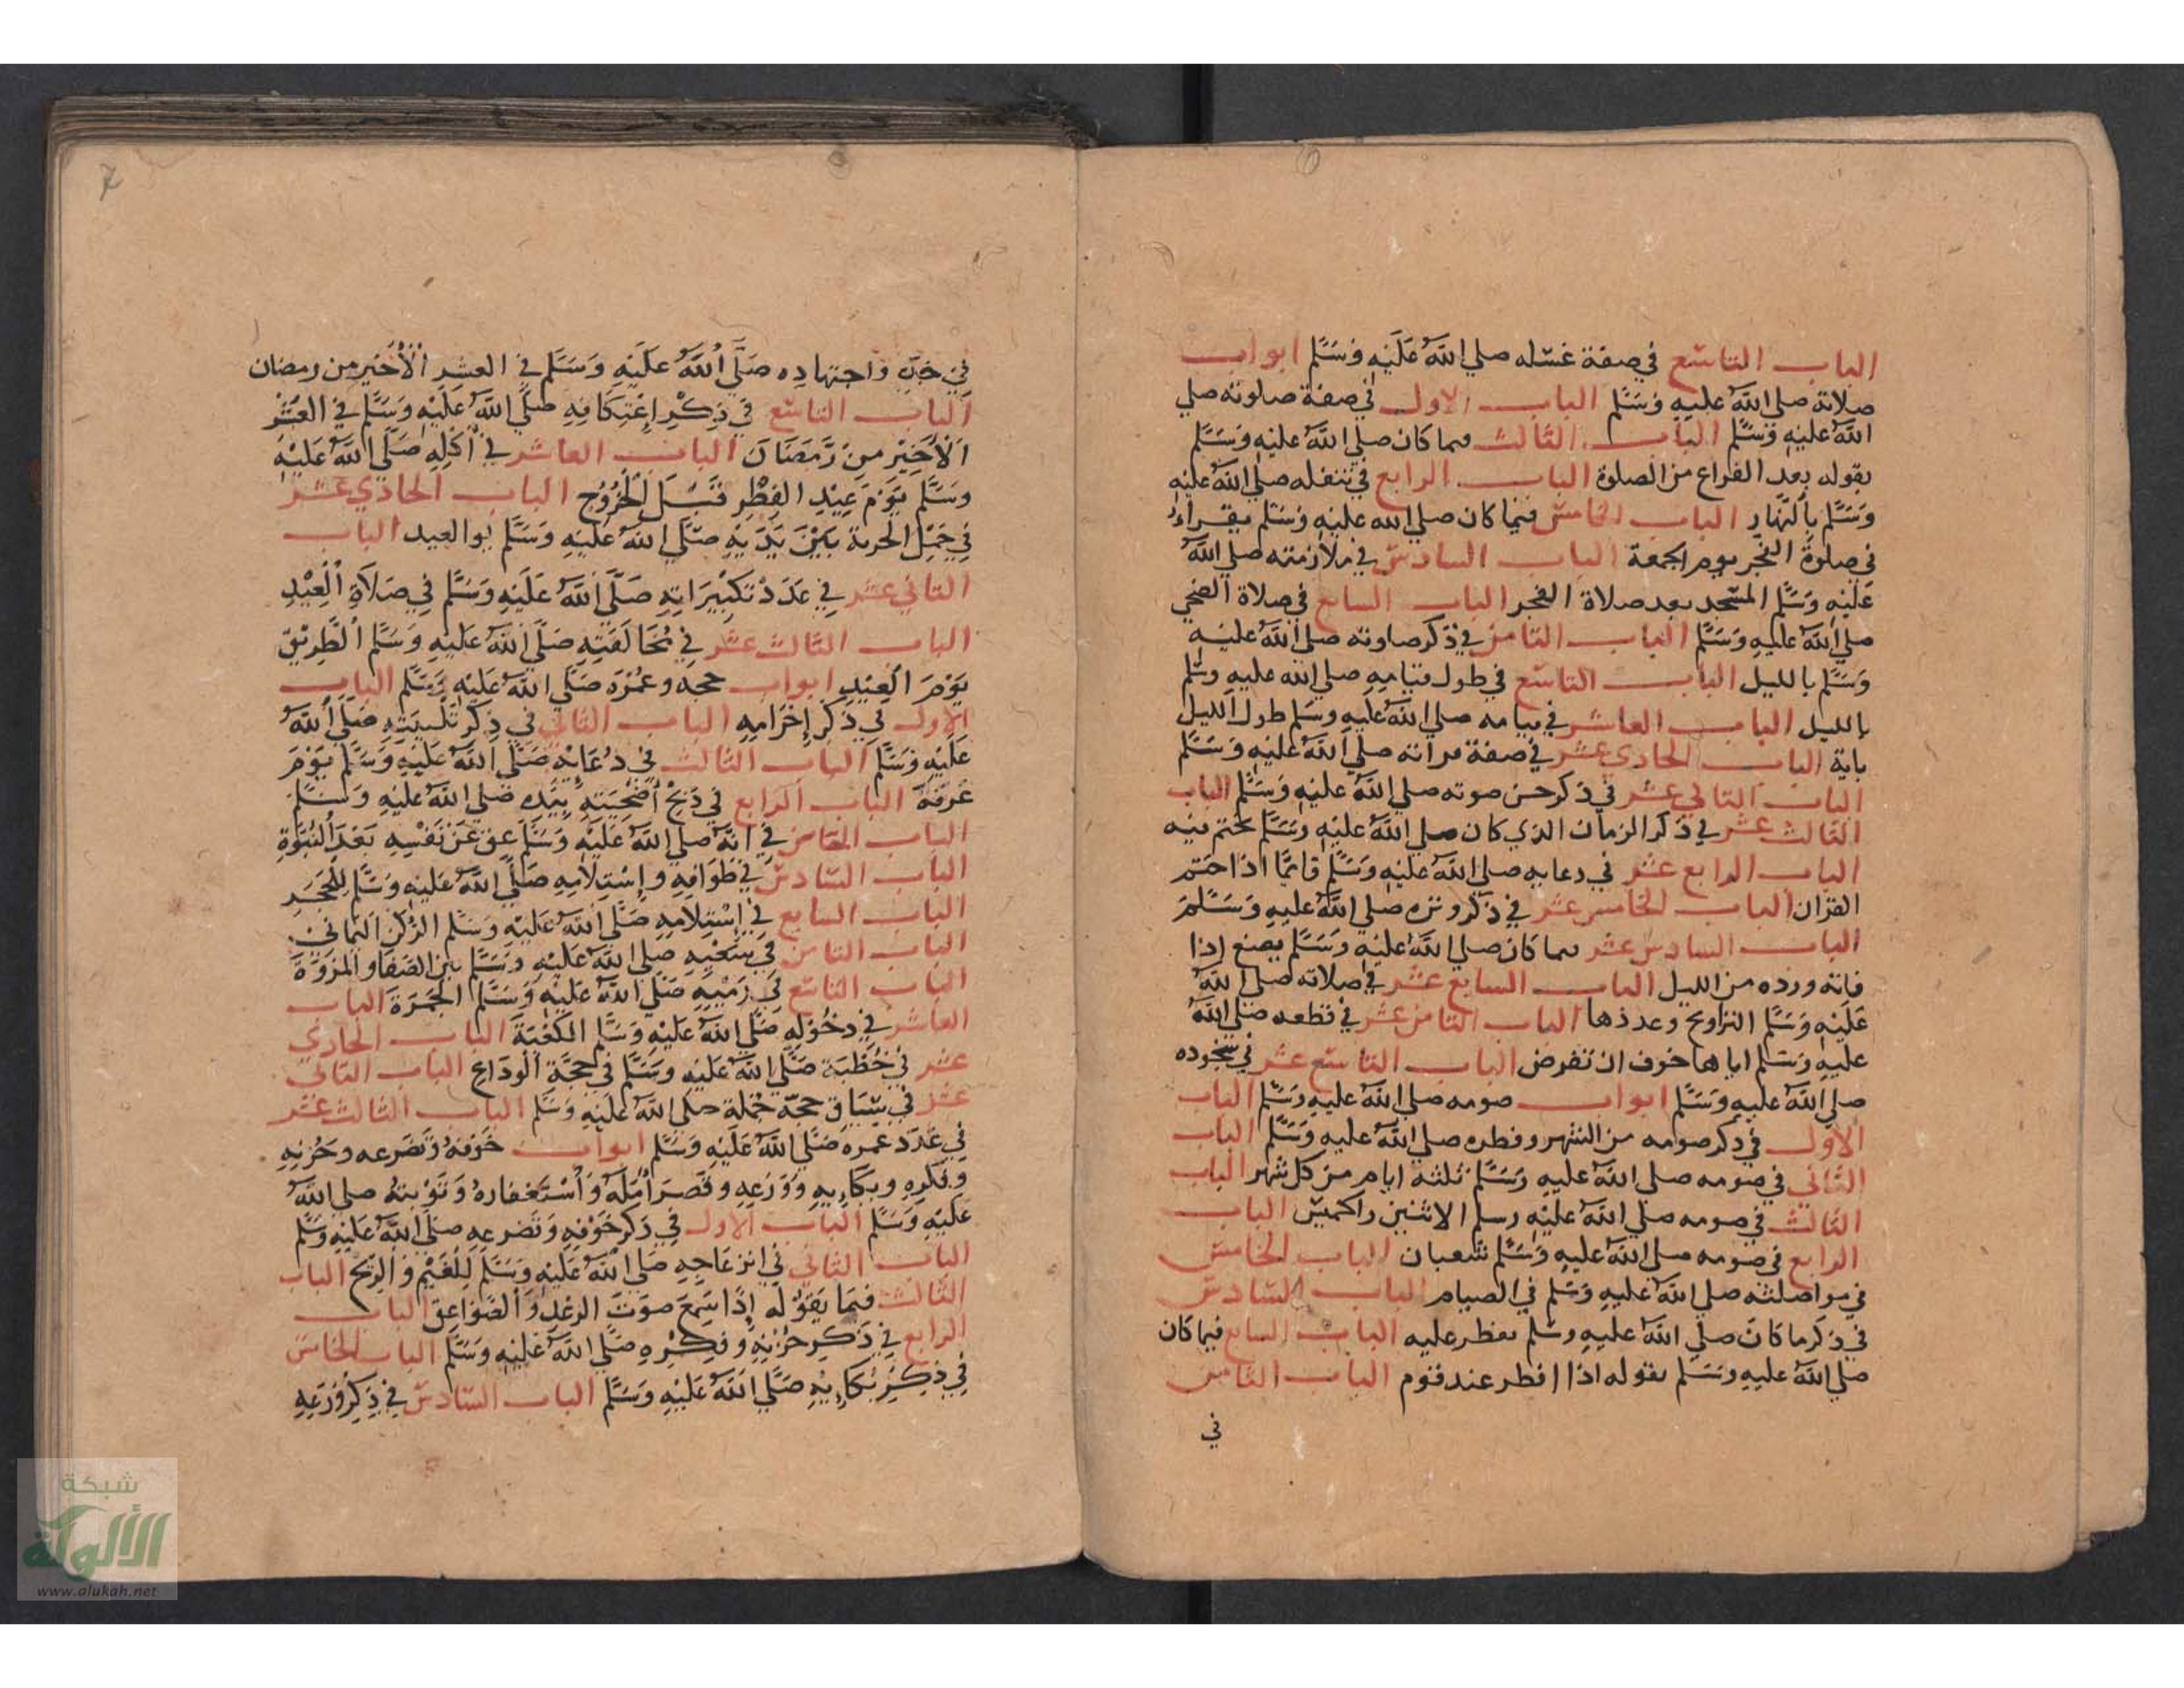 الباب التاسع في صفة غسله صلي الله عليه وسلم ابواب
صلاته صلي الله عليه وسلم الباب الاول في صفة صلوته صلي
الله عليه وسلم الباب الثالث فيما كان صلي الله عليه وسلم
يقوله بعد الفراغ من الصلوة الباب الرابع في تنفله صلي الله عليه
وسلم بالنهار الباب الخامس فيما كان صلي الله عليه وسلم يقراء
في صلوة الفجر يوم الجمعة الباب السادس في ملازمته صلي الله
عليه وسلم المسجد بعد صلاة الفجر الباب السابع في صلاة الضحي
صلي الله عليه وسلم الباب الثامن في ذكر صلوته صلي الله عليه
وسلم بالليل الباب التاسع في طول قيامه صلي الله عليه وسلم
بالليل الباب العاشر في قيامه صلي الله عليه وسلم طول الليل
باية الباب الحادي عشر في صفة قراته صلي الله عليه وسلم
الباب الثاني عشر في ذكر حسن صوته صلي الله عليه وسلم الباب
الثالث عشر في ذكر الزمان الذي كان صلي الله عليه وسلم يختم فيه
الباب الرابع عشر في دعايه صلي الله عليه وسلم قايما اذا ختم
القران الباب الخامس عشر في ذكر وتره صلي الله عليه وسلم
الباب السادس عشر فيما كان صلي الله عليه وسلم يصنع اذا
فاته ورده من الليل الباب السابع عشر في صلاته صلي الله
عليه وسلم التراويح وعددها الباب الثامن عشر في قطعه صلي الله
عليه وسلم اياها خوف ان تفرض الباب التاسع عشر في سجوده
صلي الله عليه وسلم ابواب صومه صلي الله عليه وسلم الباب
الاول في ذكر صومه من الشهر وفطره صلي الله عليه وسلم الباب
الثاني في صومه صلي الله عليه وسلم ثلثه ايام من كل شهر الباب
الثالث في صومه صلي الله عليه وسلم الاثنين والخميس الباب
الرابع في صومه صلي الله عليه وسلم شعبان الباب الخامس
في مواصلته صلي الله عليه وسلم في الصيام الباب السادس
في ذكر ما كان صلي الله عليه وسلم يفطر عليه الباب السابع فيما كان
صلي الله عليه وسلم يقوله اذا افطر عند قوم الباب الثامن
في
7
واجتهاده صلي الله عليه وسلم في العشر الأخير من رمضان
الباب التاسع في ذكر إعتكافه صلي الله عليه وسلم في العشر
الأخير من رمضان الباب العاشر في أكله صلي الله عليه
وسلم يوم عيد الفطر قبل الخروج الباب الحادي عشر
في حمل الحربة بين يديه صلي الله عليه وسلم يوالعيد الباب
الثاني عشر في عدد تكبيراته صلي الله عليه وسلم في صلاة العيد
الباب الثالث عشر في مخالفته صلي الله عليه وسلم الطريق
يوم العيد ابواب حجه وعمره صلي الله عليه وسلم الباب
الاول في ذكر إحرامه الباب الثاني في ذكر تلبيته صلي الله
عليه وسلم الباب الثالث في دعايه صلي الله عليه وسلم يوم
عرفة الباب الرابع في ذبح أضحيته بيده صلي الله عليه وسلم
الباب الخامس في انه صلي الله عليه وسلم عق عن نفسه بعد النبوة
الباب السادس في طوافه وإستلامه صلي الله عليه وسلم للحجر
الباب السابع في إستلامه صلي الله عليه وسلم الركن اليماني
الباب الثامن في سعيه صلي الله عليه وسلم بين الصفا والمروة
الباب التاسع في رميه صلي الله عليه وسلم الجمرة الباب
العاشر في دخوله صلي الله عليه وسلم الكعبة الباب الحادي
عشر في خطبة صلي الله عليه وسلم في حجة الوداع الباب الثاني
عشر في سياق حجه جملة صلي الله عليه وسلم الباب الثالث عشر
في عدد عمره صلي الله عليه وسلم ابواب خوفه وتضرعه وحزنه
وفكره وبكايه وورعه وقصر أمله وأستغفاره وتوبته صلي الله
عليه وسلم الباب الاول في ذكر خوفه وتضرعه صلي الله عليه وسلم
الباب الثاني في انزعاجه صلي الله عليه وسلم للغيم والريح الباب
الثالث فيما يقوله إذا سمع صوت الرعد والصواعق الباب
الرابع في ذكر حزنه وفكره صلي الله عليه وسلم الباب الخامس
في ذكر بكايه صلي الله عليه وسلم الباب السادس في ذكر ورعه
شبكة
الألوكة
www.alukah.net